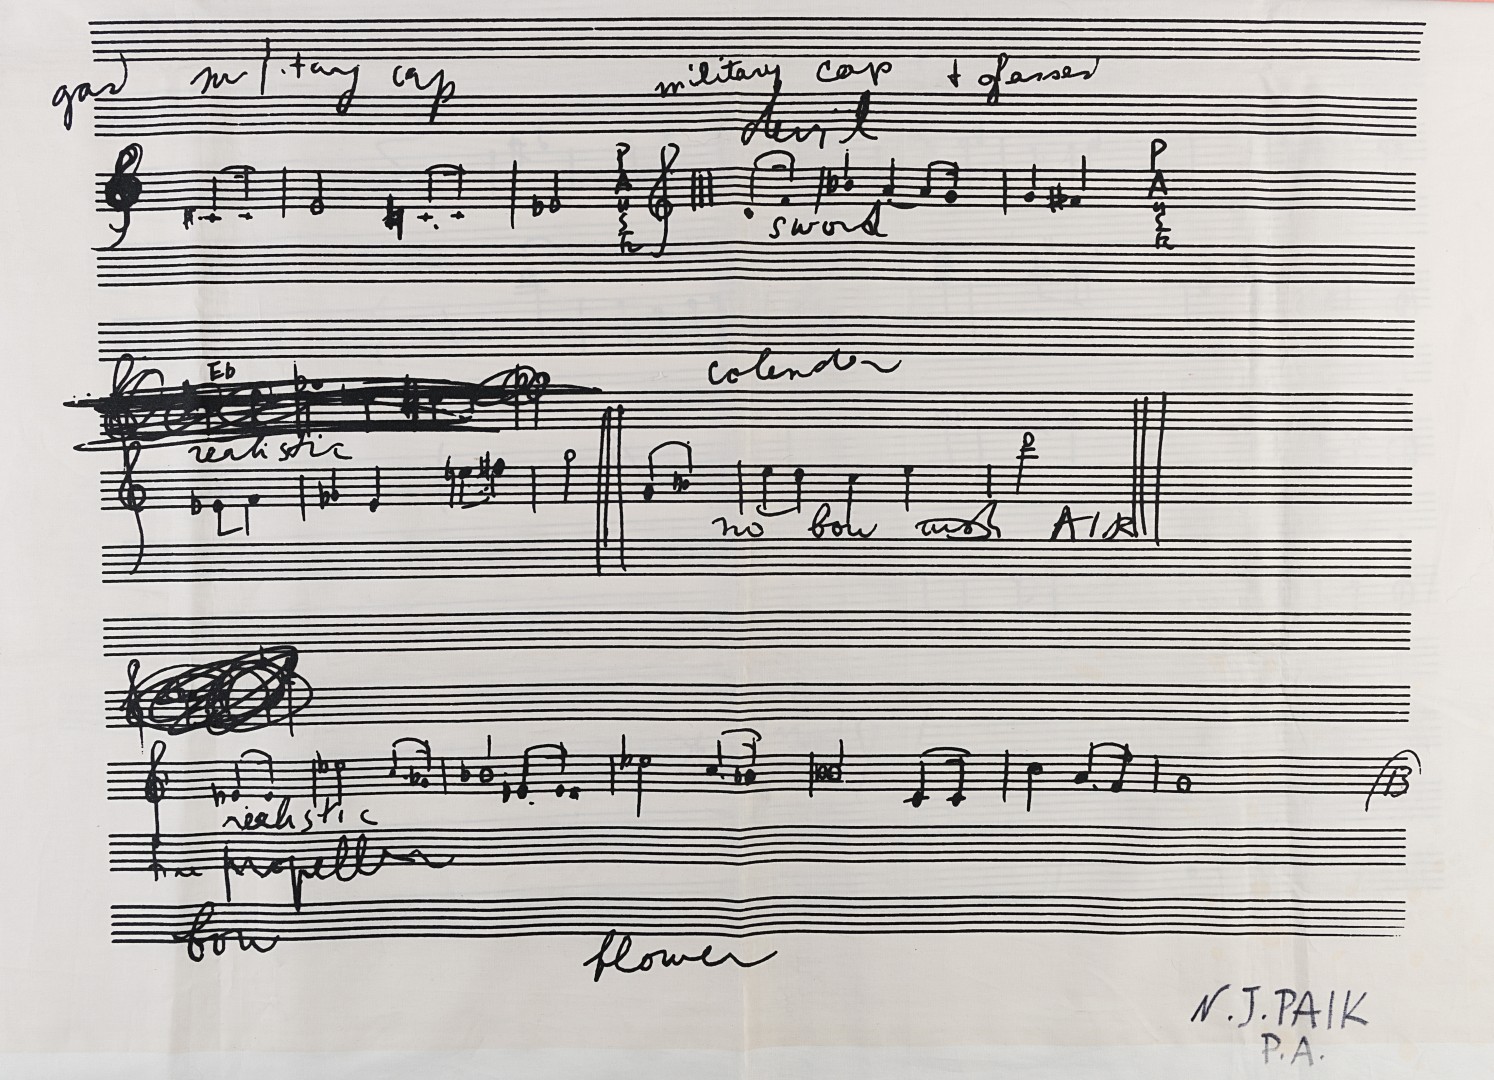 gas military cap military cap + glasses
devil
PAUSE PAUSE
sword
Eb calender
realistic
no bow AIR
B
realistic
propeller
bow flower
N.J.PAIK
P.A.